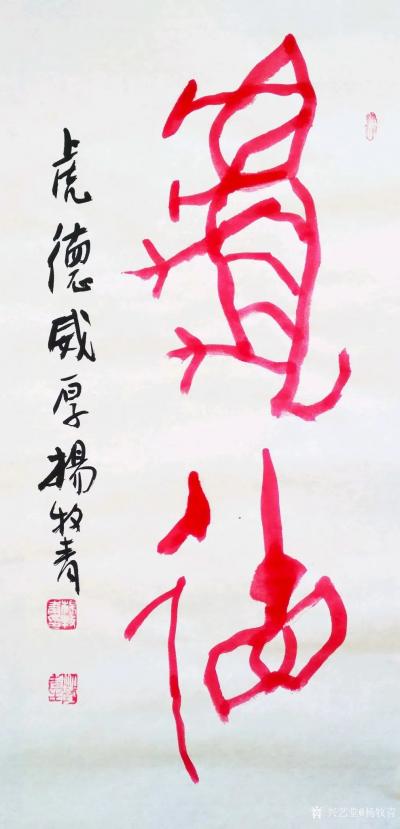 虎福
虎德威厚楊牧青
兴艺堂@杨牧青